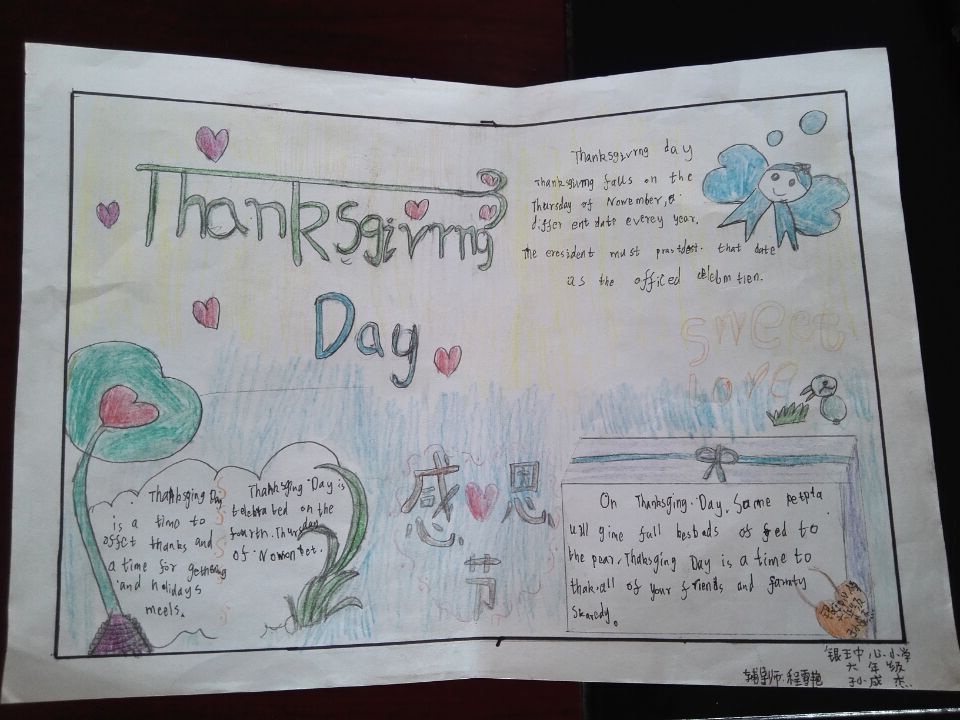 Thanksgivrng
Day
Thanksgivrng day
Thanksgiving falls on the
Thursday of November, a
differ ent date everey year.
the eresident must that date
as the officed
sweet
Love
感恩
节
Thanksging Day
is a time to
offet thanks and
a time for gethering
and holidays
meels.
Thanksging Day is
telebrabed on the
fourth. Thursday
of Nomonbet.
On Thanksging. Day, Some petpla
will gine full besbads of fed to
the pear. Thaksging Day is a time to
thak.all of your friends and famty
Skaredy.
银王中心小学
六年级
孙成杰
辅导师:程雪艳